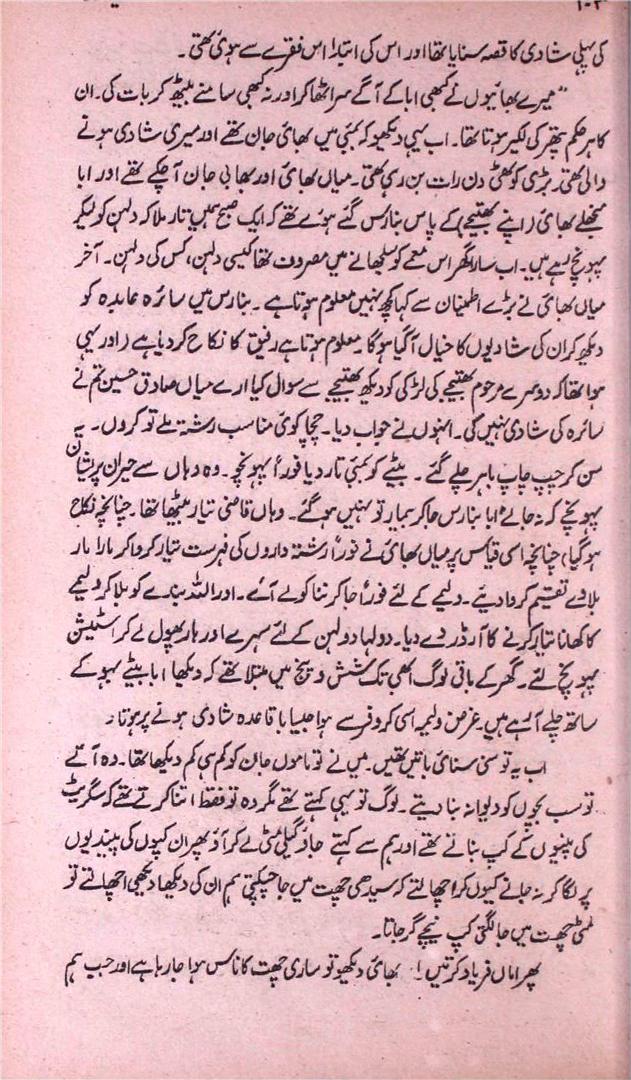 ۱۰۲
کی پہلی شادی کا قصہ سنایا تھا اور اس کی ابتدا اس فقرے سے ہوئی تھی۔
"میرے بھائیوں نے کبھی ابا کے آگے سر اٹھا کر اور نہ کبھی سامنے بیٹھ کر بات کی۔ ان
کا ہر حکم پتھر کی لکیر ہوتا تھا۔ اب یہی دیکھو کہ بمبئی میں بھائی جان تھے اور میری شادی ہونے
والی تھی۔ بڑی کوٹھی دن رات بن رہی تھی۔ میاں بھائی اور بھابی جان آ چکے تھے اور ابا
منجھلے بھائی (اپنے بھتیجے) کے پاس بنارس گئے ہوئے تھے کہ ایک صبح ہمیں تار ملا کہ دلہن کو لیکر
پہونچ رہے ہیں۔ اب سارا گھر اس معمے کو سلجھانے میں مصروف تھا کیسی دلہن، کس کی دلہن۔ آخر
میاں بھائی نے بڑے اطمینان سے کہا کچھ نہیں معلوم ہوتا ہے۔ بنارس میں سائرہ عابدہ کو
دیکھ کر ان کی شادیوں کا خیال آگیا ہوگا۔ معلوم ہوتا ہے رفیق کا نکاح کر دیا ہے (اور یہی
ہوا تھا کہ دوسرے مرحوم بھتیجے کی لڑکی کو دیکھ بھتیجے سے سوال کیا ارے میاں صادق حسین تم نے
سائرہ کی شادی نہیں کی۔ انہوں نے جواب دیا۔ چچا کوئی مناسب رشتہ ملے تو کروں۔ یہ
سن کر چپ چاپ باہر چلے گئے۔ بیٹے کو بمبئی تار دیا فوراً پہونچو۔ وہ وہاں سے حیران پریشان
پہونچے کہ نہ جانے ابا بنارس جا کر بیمار تو نہیں ہو گئے۔ وہاں قاضی تیار بیٹھا تھا۔ چنانچہ نکاح
ہو گیا) چنانچہ اسی قیاس پر میاں بھائی نے فوراً رشتہ داروں کی فہرست تیار کروا کر مارا مار
بلاوے تقسیم کروا دیئے۔ ولیمے کے لئے فوراً جا کر ننا کو لے آئے۔ اور اللہ بندے کو بلا کر ولیمے
کا کھانا تیار کرنے کا آرڈر دے دیا۔ دولہا دولہن کے لئے سہرے اور ہار پھول لے کر اسٹیشن
پہونچ لئے۔ گھر کے باقی لوگ ابھی تک شش و پنج میں مبتلا تھے کہ دیکھا ابا بیٹے بہو کے
ساتھ چلے آرہے ہیں۔ غرض ولیمہ اسی کروفر سے ہوا جیسا باقاعدہ شادی ہونے پر ہوتا۔
اب یہ تو سنی سنائی باتیں تھیں۔ میں نے تو ماموں جان کو کم ہی کم دیکھا تھا۔ وہ آتے
تو سب بچوں کو دیوانہ بنا دیتے۔ لوگ تو یہی کہتے تھے مگر وہ تو فقط اتنا کرتے تھے کہ سگریٹ
کی پنیوں کے کپ بناتے تھے اور ہم سے کہتے جاؤ گیلی مٹی لے کر آؤ پھر ان کپوں کی پیندیوں
پر لگا کر نہ جانے کیوں کر اچھالتے کہ سیدھی چھت میں جا چپکتی ہم ان کی دیکھا دیکھی اچھالتے تو
مٹی چھت میں جا لگتی کپ نیچے گر جاتا۔
پھر اماں فریاد کرتیں! بھائی دیکھو تو ساری چھت کا ناس ہوا جا رہا ہے اور جب ہم